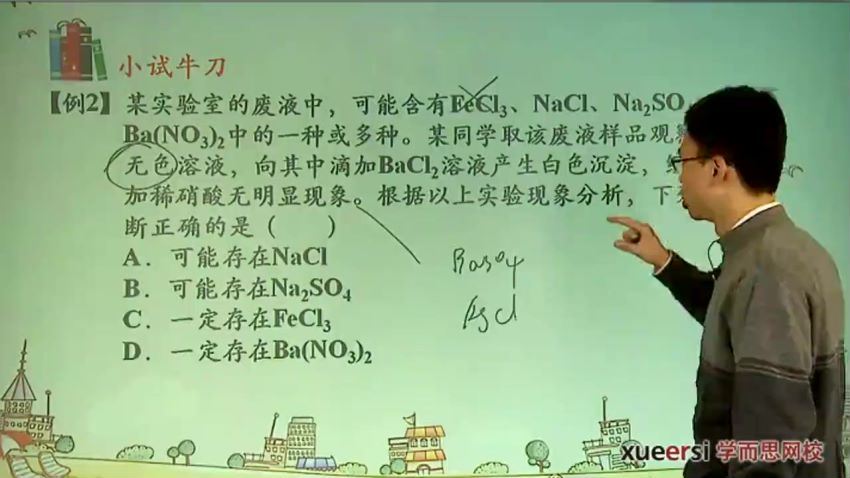 小试牛刀
【例2】某实验室的废液中，可能含有FeCl₃、NaCl、Na₂SO
Ba(NO₃)₂中的一种或多种。某同学取该废液样品观
无色溶液，向其中滴加BaCl₂溶液产生白色沉淀，
加稀硝酸无明显现象。根据以上实验现象分析，下
断正确的是（　　）
A．可能存在NaCl
BaSO₄
B．可能存在Na₂SO₄
AgCl
C．一定存在FeCl₃
D．一定存在Ba(NO₃)₂
xueersi 学而思网校